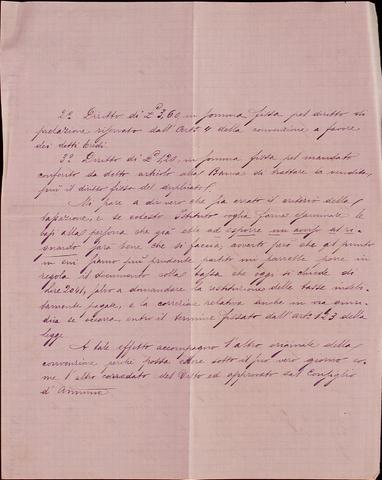 2º Diritto di L. 3,60 in somma fissa pel diritto di
prelazione riservato dall'Artº 4 della convenzione a favore
dei detti Eredi
3º Diritto di L. 1,20, in somma fissa pel mandato
conferito da detto articolo alla Banca di trattare la vendita,
più il diritto fisso del duplicato.
Mi pare a dir vero che sia errato il criterio della
tassazione, e se codesto Istituto voglia farne esaminare le
basi alla persona che già ebbe ad esporre un avviso al ri-
guardo sarà bene che si faccia, avverto però che al punto
in cui siamo più prudente partito mi parrebbe porre in
regola il documento colla tassa che oggi si chiede di
Lire 2041, salvo a domandare la restituzione delle tasse indebi-
tamente pagate, e la correzione relativa anche in via giudi-
ziaria se occorra entro il termine fissato dall'artº 123 della
legge
A tale effetto accompagno l'altro originale della
convenzione perchè possa essere sotto il suo vero giorno co-
me l'altro corredato del Visto ed approvato dal Consiglio
d'Amm.ne